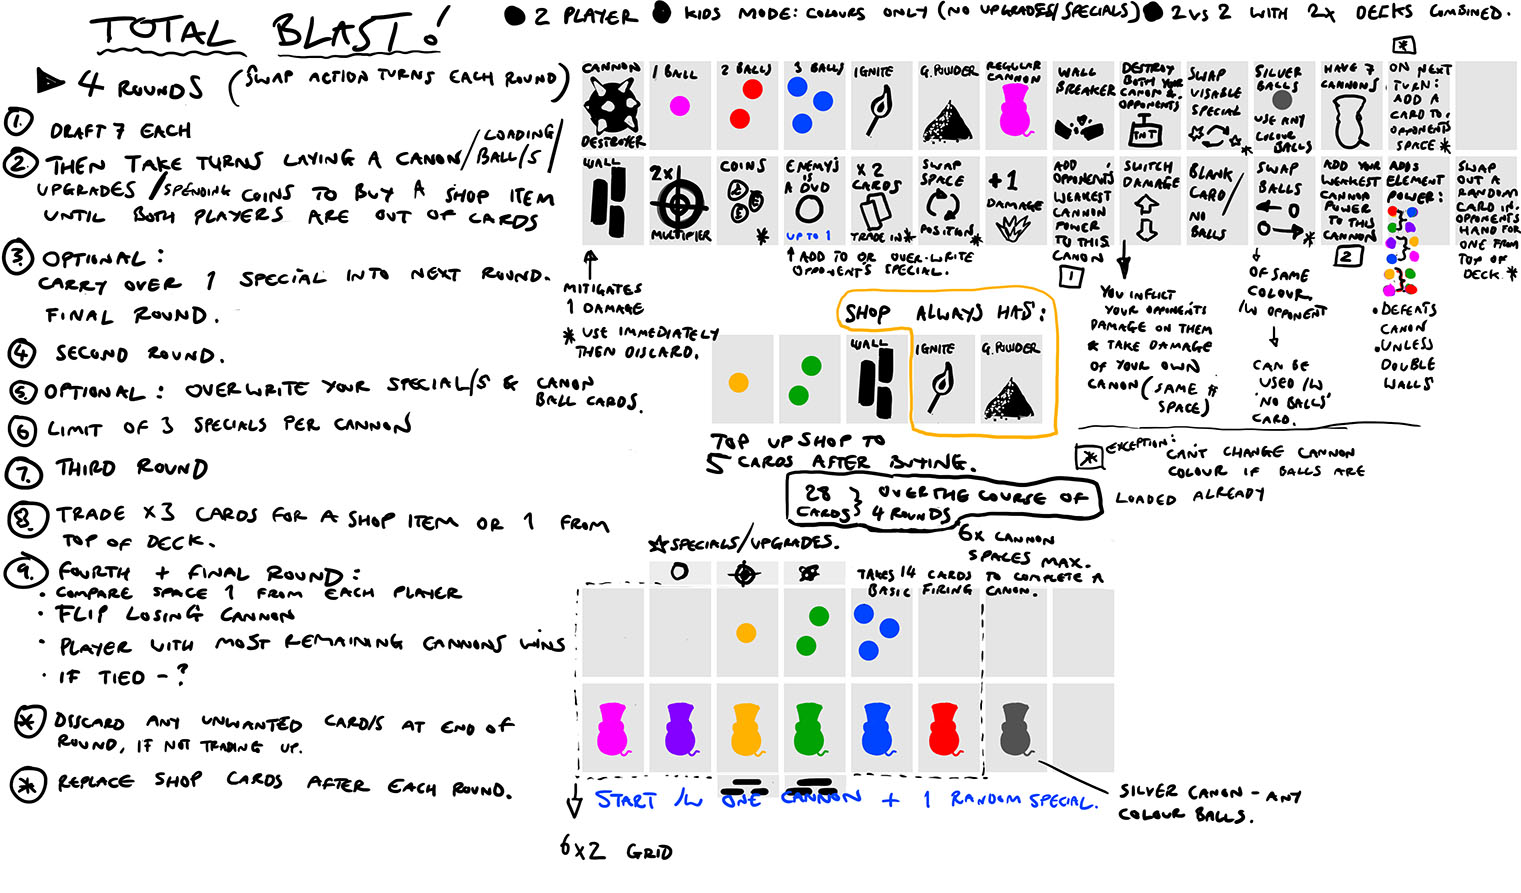 TOTAL BLAST!
2 PLAYER
KIDS MODE: COLOURS ONLY (NO UPGRADES/SPECIALS)
2 VS 2 WITH 2X DECKS COMBINED.
4 ROUNDS (SWAP ACTION TURNS EACH ROUND)
1. DRAFT 7 EACH
2. THEN TAKE TURNS LAYING A CANON/LOADING/
BALL/S/
UPGRADES/SPENDING COINS TO BUY A SHOP ITEM
UNTIL BOTH PLAYERS ARE OUT OF CARDS
3. OPTIONAL:
CARRY OVER 1 SPECIAL INTO NEXT ROUND.
FINAL ROUND.
4 SECOND ROUND.
5 OPTIONAL: OVERWRITE YOUR SPECIAL/S & CANON
BALL CARDS.
6 LIMIT OF 3 SPECIALS PER CANNON
7. THIRD ROUND
8. TRADE X3 CARDS FOR A SHOP ITEM OR 1 FROM
TOP OF DECK.
9. FOURTH + FINAL ROUND:
• COMPARE SPACE 1 FROM EACH PLAYER
• FLIP LOSING CANNON
• PLAYER WITH MOST REMAINING CANNONS WINS
• IF TIED - ?
* DISCARD ANY UNWANTED CARD/S AT END OF
ROUND, IF NOT TRADING UP.
* REPLACE SHOP CARDS AFTER EACH ROUND.
CANNON
DESTROYER
1 BALL
2 BALLS
3 BALLS
IGNITE
G. POWDER
REGULAR
CANNON
WALL
BREAKER
DESTROY
BOTH YOUR
CANON &
OPPONENTS
TNT
SWAP
VISABLE
SPECIAL
*
SILVER
BALLS
USE ANY
COLOUR
BALLS
HAVE 7
CANNONS
*
ON NEXT
TURN:
ADD A
CARD TO
OPPONENTS
SPACE *
WALL
2X
MULTIPIER
COINS
2
*
ENEMY'S
IS
A DUD
UP TO 1
X 2
CARDS
TRADE IN *
SWAP
SPACE
POSITION *
+1
DAMAGE
ADD
OPPONENTS
WEAKEST
CANNON
POWER
TO THIS
CANON
1
SWITCH
DAMAGE
BLANK
CARD/
NO
BALLS
SWAP
BALLS
*
ADD YOUR
WEAKEST
CANNON
POWER
TO THIS
CANNON
2
ADDS
ELEMENT
POWER:
SWAP
OUT A
RANDOM
CARD IN
OPPONENTS
HAND FOR
ONE FROM
TOP OF
DECK *
MITIGATES
1 DAMAGE
* USE IMMEDIATELY
THEN DISCARD.
ADD TO OR OVER-WRITE
OPPONENT'S SPECIAL.
YOU INFLICT
YOUR OPPONENTS
DAMAGE ON THEM
& TAKE DAMAGE
OF YOUR OWN
CANON (SAME #
SPACE)
OF SAME
COLOUR
/W OPPONENT
CAN BE
USED /W
'NO BALLS'
CARD.
• DEFEATS
CANON
• UNLESS
DOUBLE
WALLS
SHOP ALWAYS HAS:
WALL
IGNITE
G. POWDER
TOP UP SHOP TO
5 CARDS AFTER BUYING.
* EXCEPTION:
CAN'T CHANGE CANNON
COLOUR IF BALLS ARE
LOADED ALREADY
28
CARDS } OVER THE COURSE OF
4 ROUNDS
6X CANNON
SPACES MAX.
SPECIALS/UPGRADES.
TAKES 14 CARDS TO COMPLETE A
BASIC FIRING CANON.
START /W ONE CANNON + 1 RANDOM SPECIAL.
6X2 GRID
SILVER CANON - ANY
COLOUR BALLS.